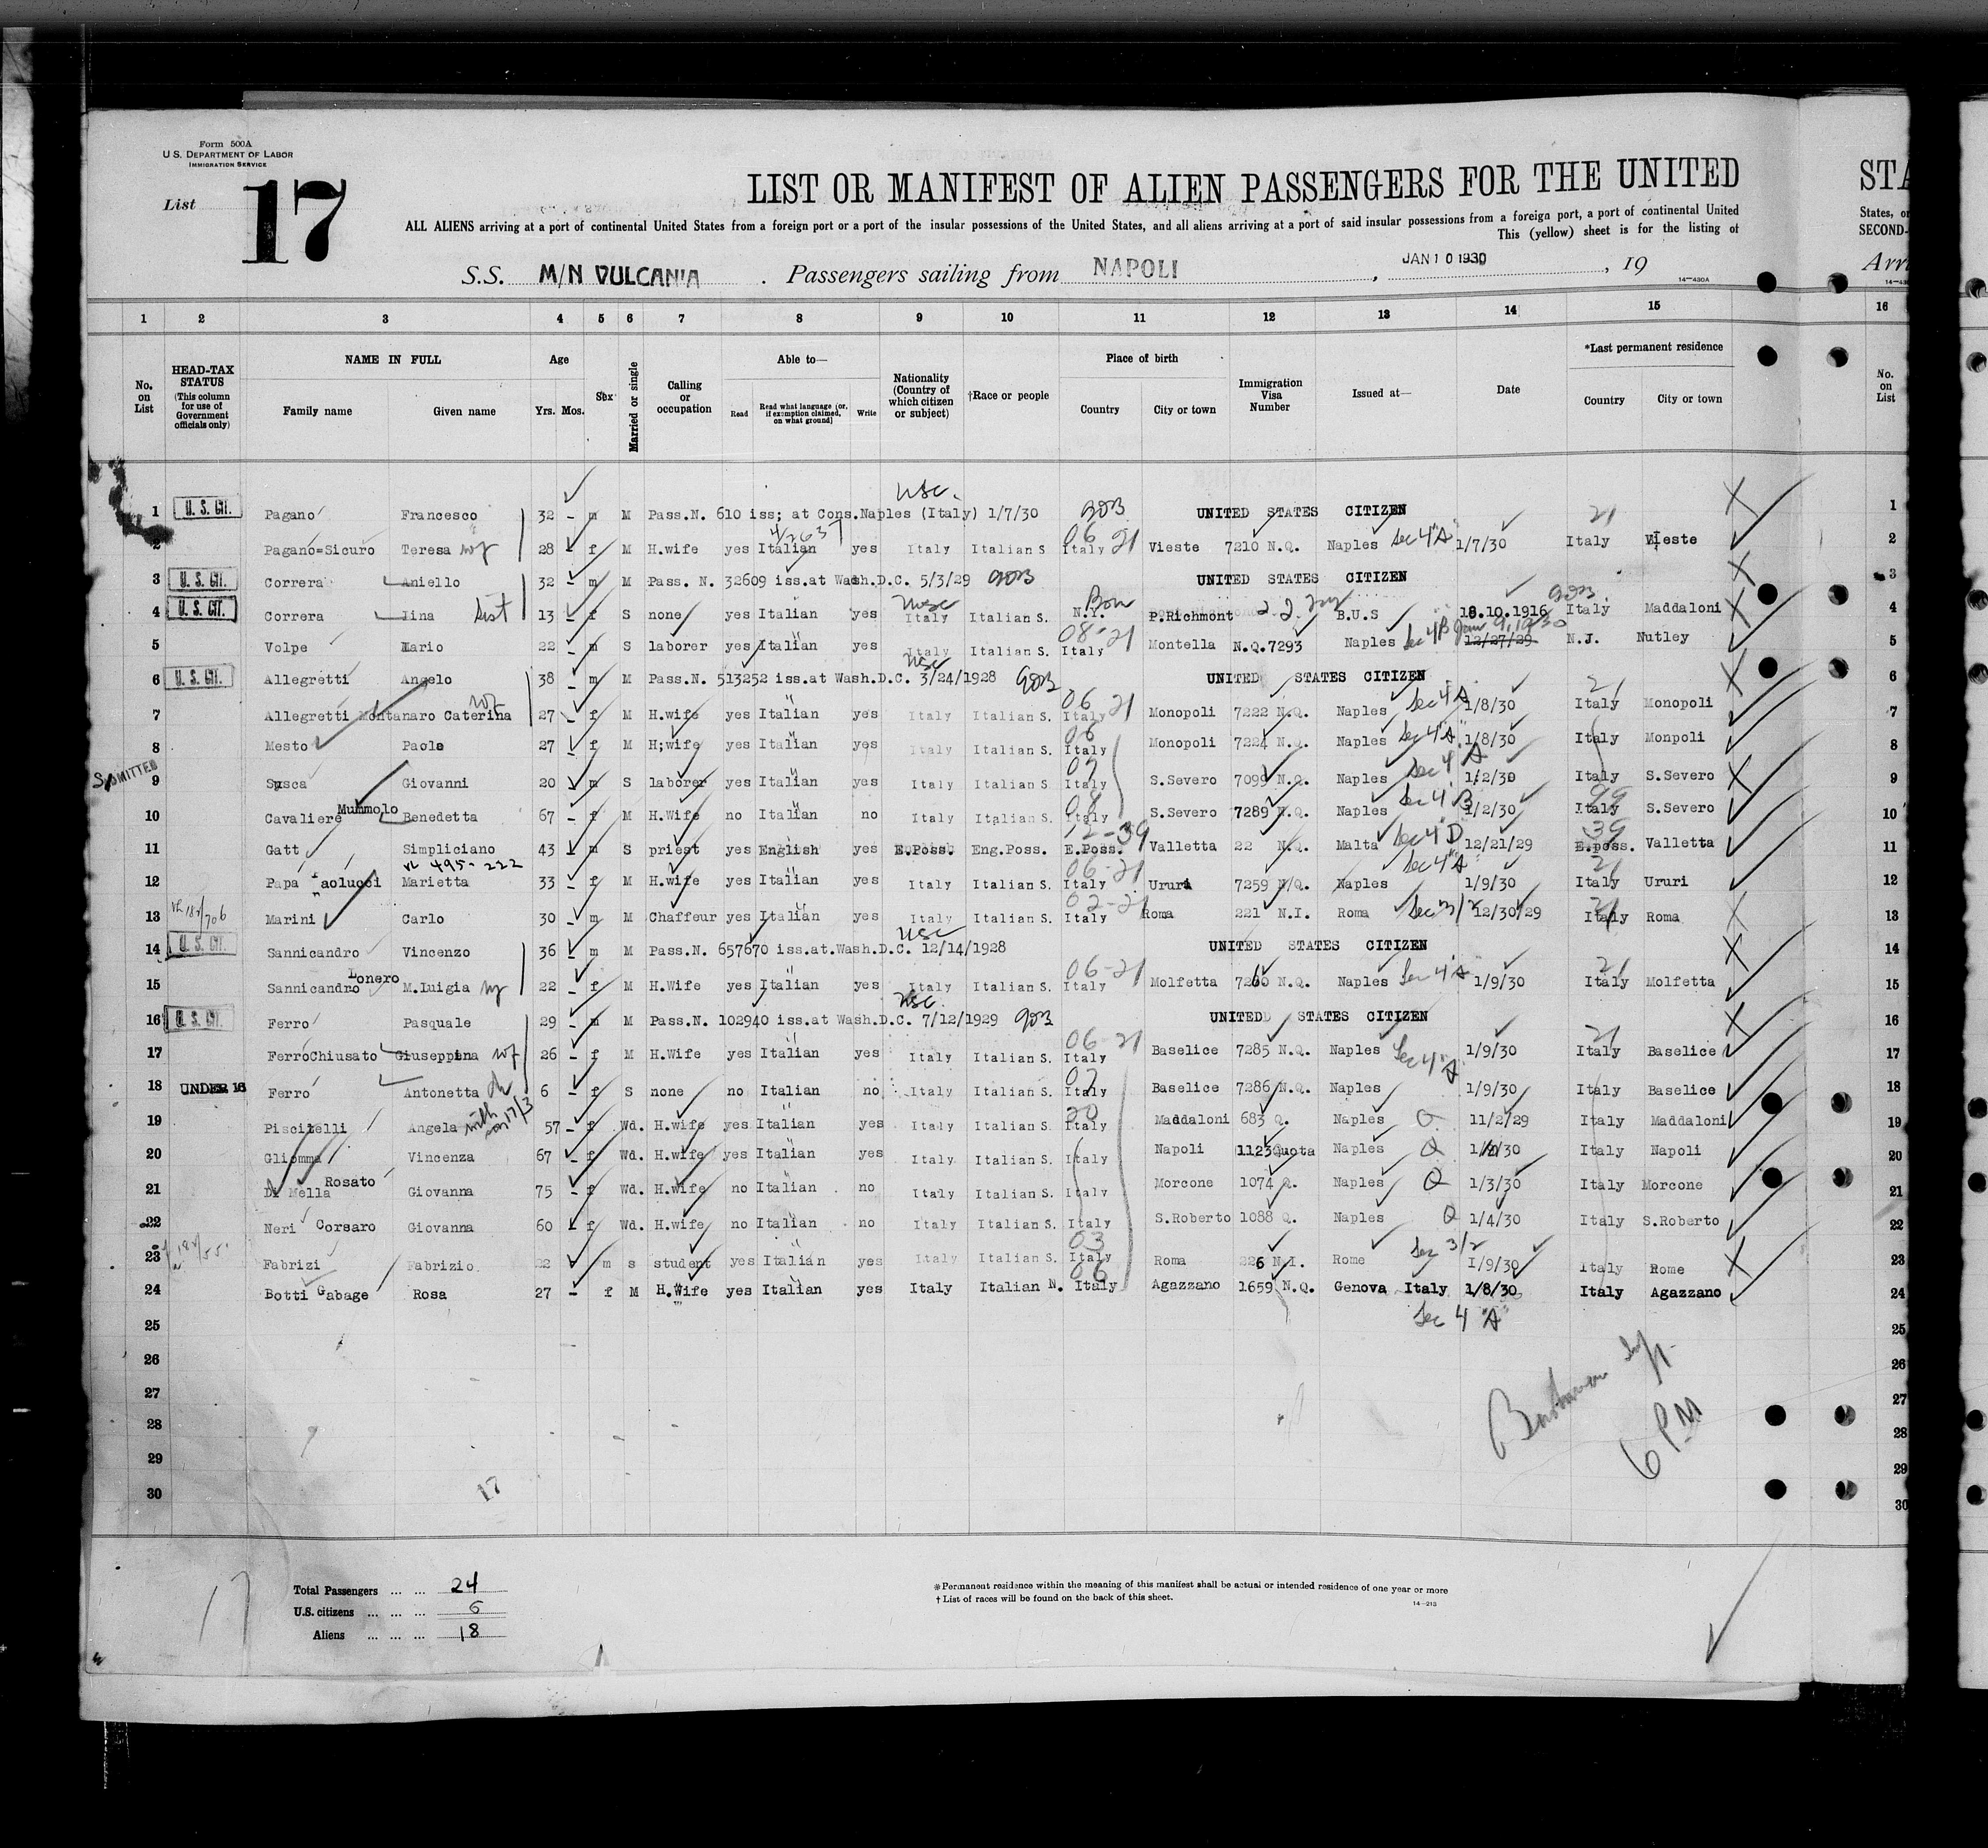 Form 500A
U. S. DEPARTMENT OF LABOR
IMMIGRATION SERVICE
List 17
LIST OR MANIFEST OF ALIEN PASSENGERS FOR THE UNITED
STA
ALL ALIENS arriving at a port of continental United States from a foreign port or a port of the insular possessions of the United States, and all aliens arriving at a port of said insular possessions from a foreign port, a port of continental United
States, or
This (yellow) sheet is for the listing of
SECOND-
S.S. M/N VULCANIA . Passengers sailing from NAPOLI , JAN 10 1930 , 19
Arri
14—430A
1 2 3 4 5 6 7 8 9 10 11 12 13 14 15 16
No. on List
HEAD-TAX STATUS (This column for use of Government officials only)
NAME IN FULL
Family name Given name
Age
Yrs. Mos.
Sex
Married or single
Calling or occupation
Able to—
Read Read what language (or, if exemption claimed, on what ground) Write
Nationality (Country of which citizen or subject)
†Race or people
Place of birth
Country City or town
Immigration Visa Number
Issued at—
Date
*Last permanent residence
Country City or town
No. on List
1 U. S. CIT. Pagano Francesco 32 – m M Pass.N. 610 iss; at Cons.Naples (Italy) 1/7/30 usc. UNITED STATES CITIZEN 21 1
2 Pagano=Sicuro Teresa wf 28 – f M H.wife yes Italian yes Italy Italian S Italy 06 21 Vieste 7210 N.Q. Naples Sec 4 "A" 1/7/30 Italy Vieste 2
3 U. S. CIT. Correra Aniello 32 – m M Pass. N. 32609 iss.at Wash.D.C. 5/3/29 UNITED STATES CITIZEN 3
4 U. S. CIT. Correra Iina Sist 13 – f S none yes Italian yes Italy Italian S. N.Y. Born P.Richmont B.U.S 18.10.1916 Italy Maddaloni 4
5 Volpe Mario 22 – m S laborer yes Italian yes Italy Italian S. Italy 08-21 Montella N.Q.7293 Naples Sec 4 B Jan 9, 1930 12/27/29 N.J. Nutley 5
6 U. S. CIT. Allegretti Angelo 38 – m M Pass.N. 513252 iss.at Wash.D.C. 3/24/1928 usc UNITED STATES CITIZEN 21 6
7 Allegretti Montanaro Caterina wf 27 – f M H.wife yes Italian yes Italy Italian S. Italy 06 21 Monopoli 7222 N.Q. Naples Sec 4 A 1/8/30 Italy Monopoli 7
8 Mesto Paola 27 – f M H;wife yes Italian yes Italy Italian S. Italy 06 Monopoli 7224 N.Q. Naples Sec 4 "A" 1/8/30 Italy Monpoli 8
9 Susca Giovanni 20 – m S laborer yes Italian yes Italy Italian S Italy S.Severo N.Q. Naples Sec 4 A 1/2/30 Italy S.Severo 9
10 Cavaliere Mummolo Benedetta 67 – f M H.Wife no Italian no Italy Italian S. Italy 08 S.Severo 7289 N.Q. Naples Sec 4 B 1/2/30 Italy S.Severo 10
11 Gatt Simpliciano 43 – m S priest yes English yes E.Poss. Eng.Poss. E.Poss. 12-39 Valletta 22 N.Q. Malta Sec 4 "D" 12/21/29 E.poss. 39 Valletta 11
12 Papa Paolucci Marietta 495-222 33 – f M H.wife yes Italian yes Italy Italian S. Italy 06-21 Ururi 7259 N/Q. Naples Sec 4 A 1/9/30 Italy 21 Ururi 12
13 Marini Carlo 30 – m M Chaffeur yes Italian yes Italy Italian S. Italy 02-21 Roma 221 N.I. Roma Sec 3/2 12/30/29 Italy 21 Roma 13
14 U. S. CIT. Sannicandro Vincenzo 36 – m M Pass.N. 657670 iss.at.Wash.D.C. 12/14/1928 usc UNITED STATES CITIZEN 14
15 Sannicandro Lonero M.Luigia 22 – f M H.Wife yes Italian yes Italy Italian S. Italy 06-21 Molfetta 7260 N.Q. Naples Sec 4 "A" 1/9/30 Italy 21 Molfetta 15
16 U. S. CIT. Ferro Pasquale 29 – m M Pass.N. 102940 iss.at Wash.D.C. 7/12/1929 usc. UNITED STATES CITIZEN 16
17 Ferro Chiusato Giuseppina wf 26 – f M H.Wife yes Italian yes Italy Italian S. Italy 06 21 Baselice 7285 N.Q. Naples Sec 4 "A" 1/9/30 Italy 21 Baselice 17
18 UNDER 16 Ferro Antonetta ch 6 – f S none no Italian no Italy Italian S. Italy 07 Baselice 7286 N.Q. Naples 1/9/30 Italy Baselice 18
19 Piscitelli Angela with son 17/3 57 – f Wd. H.wife yes Italian yes Italy Italian S. Italy 20 Maddaloni 683 Q. Naples Q 11/2/29 Italy Maddaloni 19
20 Gliomma Vincenza 67 – f Wd. H.wife yes Italian yes Italy Italian S. Italy Napoli 1123 Quota Naples Q Italy Napoli 20
21 Di Mella Rosato Giovanna 75 – f Wd. H.wife no Italian no Italy Italian S. Italy Morcone 1074 Q. Naples Q 1/3/30 Italy Morcone 21
22 Neri Corsaro Giovanna 60 – f Wd. H.wife no Italian no Italy Italian S. Italy S.Roberto 1088 Q. Naples Q 1/4/30 Italy S.Roberto 22
23 Fabrizi Fabrizio 22 m s student yes Italian yes Italy Italian S. Italy 03 Roma 226 N.I. Rome Sec 3/2 1/9/30 Italy Rome 23
24 Botti Gabage Rosa 27 – f M H.Wife yes Italian yes Italy Italian N. Italy 06 Agazzano 1659 N.Q. Genova Italy 1/8/30 Italy Agazzano 24
Sec 4 "A"
25 25
26 26
27 27
28 28
29 29
30 30
17
6 PM
Total Passengers ... ... 24
U.S. citizens ... ... ... 6
Aliens ... ... ... 18
17
*Permanent residence within the meaning of this manifest shall be actual or intended residence of one year or more
† List of races will be found on the back of this sheet.
14—213